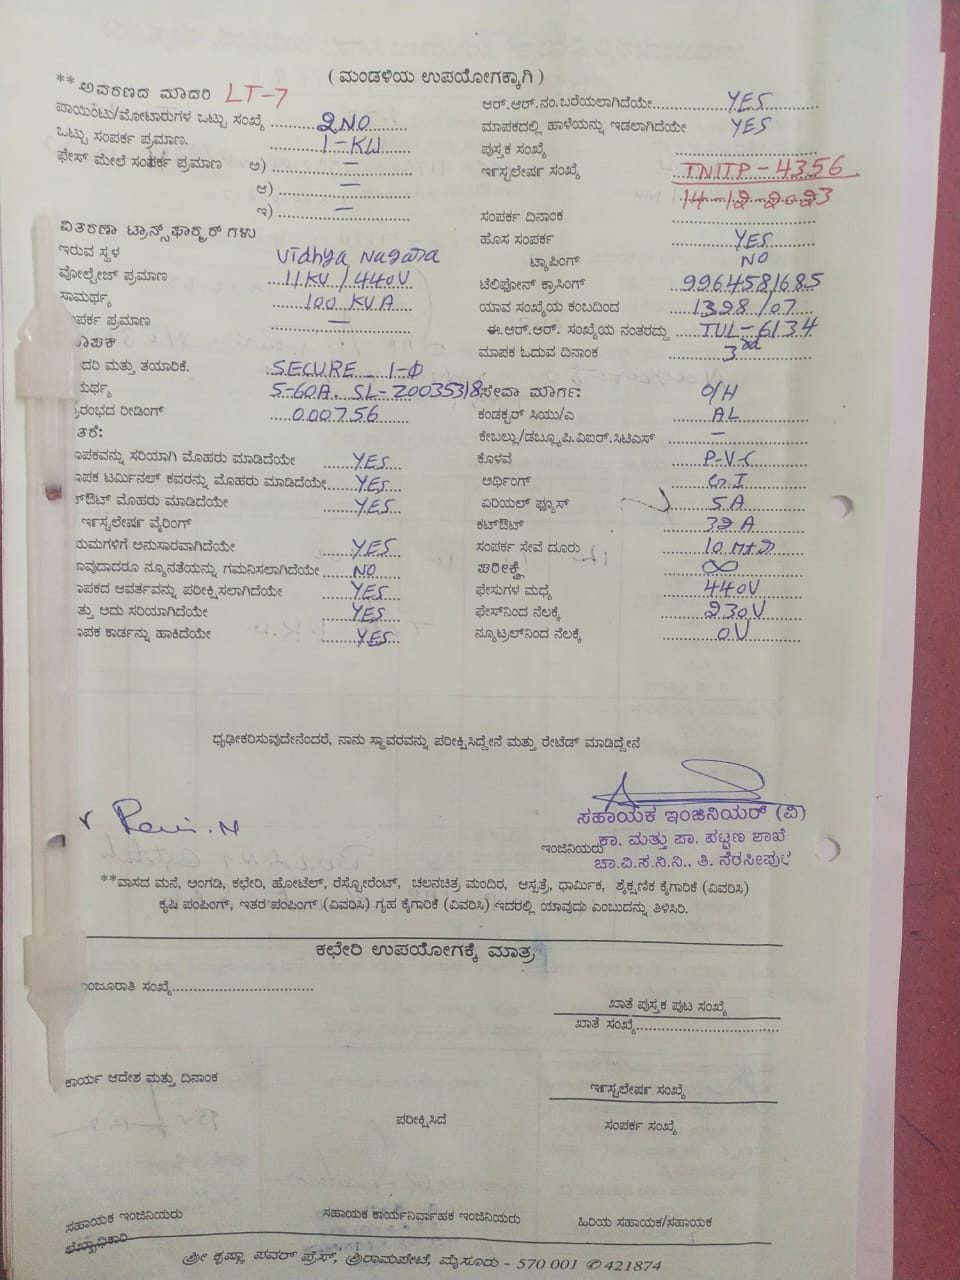 ( ಮಂಡಳಿಯ ಉಪಯೋಗಕ್ಕಾಗಿ )
** ಆವರಣದ ಮಾದರಿ LT-7
ಪಾಯಿಂಟು/ಮೋಟಾರುಗಳ ಒಟ್ಟು ಸಂಖ್ಯೆ 2NO
ಒಟ್ಟು ಸಂಪರ್ಕ ಪ್ರಮಾಣ. 1-KW
ಫೇಸ್ ಮೇಲೆ ಸಂಪರ್ಕ ಪ್ರಮಾಣ ಅ) —
ಆ) —
ಇ) —
ವಿತರಣಾ ಟ್ರಾನ್ಸ್‌ಫಾರ್ಮರ್ ಗಳು
ಇರುವ ಸ್ಥಳ Vidhya Nagara
ವೋಲ್ಟೇಜ್ ಪ್ರಮಾಣ 11KV / 440V
ಸಾಮರ್ಥ್ಯ 100 KVA
ಪರ್ಕ ಪ್ರಮಾಣ —
ಾಪಕ
ದರಿ ಮತ್ತು ತಯಾರಿಕೆ. SECURE 1-Φ
ಮರ್ಥ್ಯ 5-60A. SL-20035318
ರಂಭದ ರೀಡಿಂಗ್ 000756
ತರೆ:
ಾಪಕವನ್ನು ಸರಿಯಾಗಿ ಮೊಹರು ಮಾಡಿದೆಯೇ YES
ಾಪಕ ಟರ್ಮಿನಲ್ ಕವರನ್ನು ಮೊಹರು ಮಾಡಿದೆಯೇ YES
ಟ್‌ಔಟ್ ಮೊಹರು ಮಾಡಿದೆಯೇ YES
ಇನ್ಸ್ಟಲೇಷನ್ ವೈರಿಂಗ್
ಯಮಗಳಿಗೆ ಅನುಸಾರವಾಗಿದೆಯೇ YES
ಾವುದಾದರೂ ನ್ಯೂನತೆಯನ್ನು ಗಮನಿಸಲಾಗಿದೆಯೇ NO
ಾಪಕದ ಆವರ್ತವನ್ನು ಪರೀಕ್ಷಿಸಲಾಗಿದೆಯೇ YES
ತ್ತು ಅದು ಸರಿಯಾಗಿದೆಯೇ YES
ಾಪಕ ಕಾರ್ಡನ್ನು ಹಾಕಿದೆಯೇ YES
ಆರ್.ಆರ್.ನಂ.ಬರೆಯಲಾಗಿದೆಯೇ YES
ಮಾಪಕದಲ್ಲಿ ಹಾಳೆಯನ್ನು ಇಡಲಾಗಿದೆಯೇ YES
ಪುಸ್ತಕ ಸಂಖ್ಯೆ
ಇನ್ಸ್ಟಲೇಷನ್ ಸಂಖ್ಯೆ TNITP-4356
14-12-2023
ಸಂಪರ್ಕ ದಿನಾಂಕ
ಹೊಸ ಸಂಪರ್ಕ YES
ಟ್ಯಾಪಿಂಗ್ NO
ಟೆಲಿಫೋನ್ ಕ್ರಾಸಿಂಗ್ 9964581685
ಯಾವ ಸಂಖ್ಯೆಯ ಕಂಬದಿಂದ 1328/07
ಈ.ಆರ್.ಆರ್. ಸಂಖ್ಯೆಯ ನಂತರದ್ದು TUL-6134
ಮಾಪಕ ಓದುವ ದಿನಾಂಕ 3rd
ಸೇವಾ ಮಾರ್ಗ: O/H
ಕಂಡಕ್ಟರ್ ಸಿಯು/ಎ AL
ಕೇಬಲ್ಲು/ಡಬ್ಲ್ಯೂ.ಪಿ.ವಿಐಆರ್.ಸಿಟಿಎಸ್ —
ಕೊಳವೆ P-V-C
ಅರ್ಥಿಂಗ್ G.I
ಏರಿಯಲ್ ಫ್ಯೂಸ್ 5A
ಕಟ್‌ಔಟ್ 32A
ಸಂಪರ್ಕ ಸೇವೆ ದೂರು 10 Mtr
ಪರೀಕ್ಷೆ ∞
ಫೇಸುಗಳ ಮಧ್ಯೆ 440V
ಫೇಸ್‌ನಿಂದ ನೆಲಕ್ಕೆ 230V
ನ್ಯೂಟ್ರಲ್‌ನಿಂದ ನೆಲಕ್ಕೆ 0V
ಧೃಢೀಕರಿಸುವುದೇನೆಂದರೆ, ನಾನು ಸ್ಥಾವರವನ್ನು ಪರೀಕ್ಷಿಸಿದ್ದೇನೆ ಮತ್ತು ರೇಟೆಡ್ ಮಾಡಿದ್ದೇನೆ
Ravi.N
ಸಹಾಯಕ ಇಂಜಿನಿಯರ್ (ವಿ)
ಇಂಜಿನಿಯರು ಕಾ. ಮತ್ತು ಪಾ. ಪಟ್ಟಣ ಶಾಖೆ
ಚಾ.ವಿ.ಸ.ನಿ.ನಿ., ತಿ. ನರಸೀಪುರ
**ವಾಸದ ಮನೆ, ಅಂಗಡಿ, ಕಛೇರಿ, ಹೋಟೆಲ್, ರೆಸ್ಟೋರೆಂಟ್, ಚಲನಚಿತ್ರ ಮಂದಿರ, ಆಸ್ಪತ್ರೆ, ಧಾರ್ಮಿಕ, ಶೈಕ್ಷಣಿಕ ಕೈಗಾರಿಕೆ (ವಿವರಿಸಿ)
ಕೃಷಿ ಪಂಪಿಂಗ್, ಇತರ ಪಂಪಿಂಗ್ (ವಿವರಿಸಿ) ಗೃಹ ಕೈಗಾರಿಕೆ (ವಿವರಿಸಿ) ಇದರಲ್ಲಿ ಯಾವುದು ಎಂಬುದನ್ನು ತಿಳಿಸಿರಿ.
ಕಛೇರಿ ಉಪಯೋಗಕ್ಕೆ ಮಾತ್ರ
ಂಜೂರಾತಿ ಸಂಖ್ಯೆ
ಖಾತೆ ಪುಸ್ತಕ ಪುಟ ಸಂಖ್ಯೆ
ಖಾತೆ ಸಂಖ್ಯೆ
ಕಾರ್ಯ ಆದೇಶ ಮತ್ತು ದಿನಾಂಕ
ಇನ್ಸ್ಟಲೇಷನ್ ಸಂಖ್ಯೆ
ಪರೀಕ್ಷಿಸಿದೆ
ಸಂಪರ್ಕ ಸಂಖ್ಯೆ
ಸಹಾಯಕ ಇಂಜಿನಿಯರು
ಸಹಾಯಕ ಕಾರ್ಯನಿರ್ವಾಹಕ ಇಂಜಿನಿಯರು
ಹಿರಿಯ ಸಹಾಯಕ/ಸಹಾಯಕ
ಲೆಖ್ಖಾಧಿಕಾರಿ
ಶ್ರೀ ಕೃಷ್ಣಾ ಪವರ್ ಪ್ರೆಸ್, ಶ್ರೀರಾಮಪೇಟೆ, ಮೈಸೂರು - 570 001 ✆ 421874